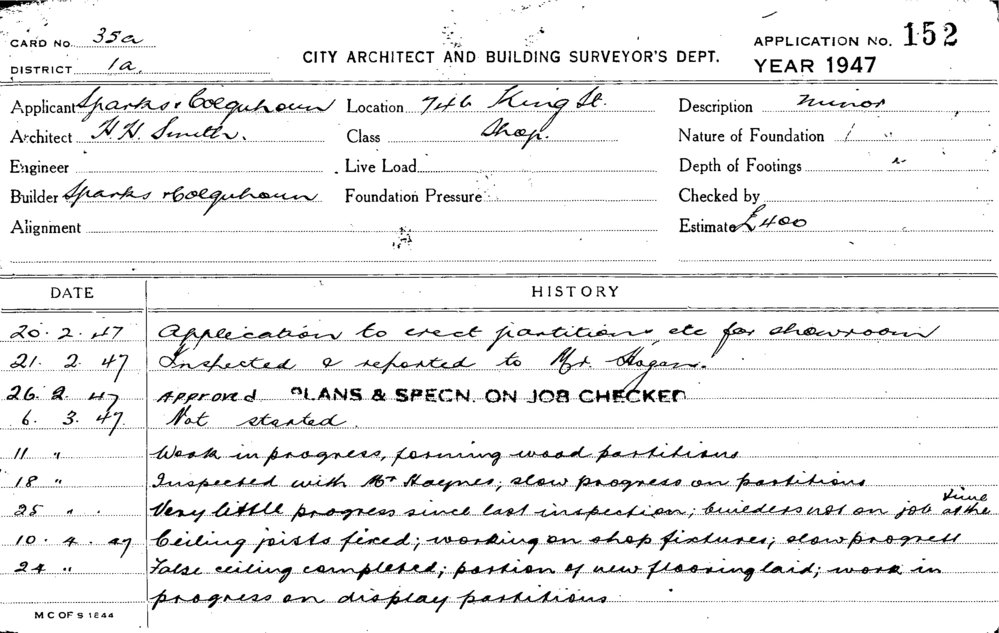 CARD No. 35a
DISTRICT 1a.
CITY ARCHITECT AND BUILDING SURVEYOR'S DEPT.
APPLICATION No. 152
YEAR 1947
Applicant Sparks & Colquhoun Location 746 King St. Description minor
Architect H. H. Smith. Class Shop. Nature of Foundation / "
Engineer Live Load Depth of Footings "
Builder Sparks & Colquhoun Foundation Pressure Checked by
Alignment Estimate £400
DATE HISTORY
20. 2. 47 Application to erect partitions etc for showroom
21. 2. 47 Inspected & reported to Mr. Hogan.
26. 2. 47 Approved PLANS & SPECN. ON JOB CHECKED
6. 3. 47. Not started.
11 " Work in progress, forming wood partitions
18 " Inspected with Mr Haynes; slow progress on partitions
25 " . Very little progress since last inspection; builders not on job at the time
10. 4. 47 Ceiling joists fixed; working on shop fixtures; slow progress
24 " False ceiling completed; portion of new flooring laid; work in
progress on display partitions
M C OF S 1844